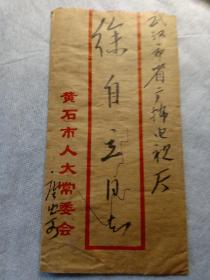 武汉市省广播电视厅
徐自立同志
黄石市人大常委会